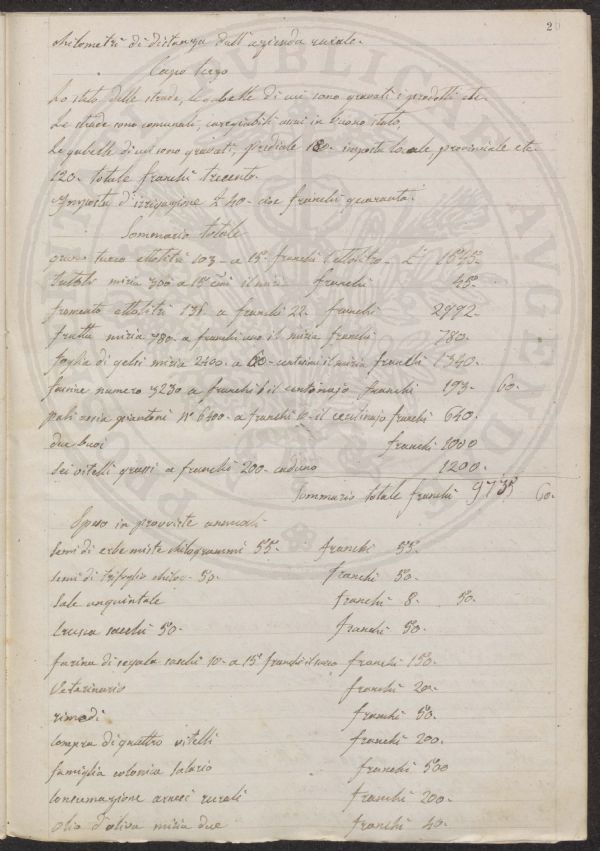 2
chilometri di distanza dall'azienda rurale.
Capo terzo
Lo stato delle strade, le gabelle di cui sono gravati i prodotti etc.
Le strade sono comunali, careggiabili assai in buono stato,
Le gabelle di cui sono gravati, prediale 180- imposta locale, provinciale etc.
120- totale franchi trecento.
Imposta d'irrigazione £ 40- cioè franchi quaranta.
Sommario totale
grano turco ettolitri 103- a 15- franchi l'ettolitro- £ 1545-
miria 300 a 15 cmi il miria franchi 45-
fromento ettolitri 136 a franchi 22- franchi 2992-
frutta miria 780- a franchi uno il miria franchi 780-
foglia di gelsi miria 2400- a 60- centesimi il miria franchi 1340-
fascine numero 3230 a franchi 6 il centinajo franchi 193- 60-
pali ossia N° 6400- a franchi 10- il centinajo franchi 640-
due buoi franchi 1000
sei vitelli grassi a franchi 200- caduno 1200-
Sommario totale franchi 9735 60-
Spese in provviste annuali
semi di erbe miste chilogrammi 55- franchi 55-
semi di trifoglio chilog- 50- franchi 50-
Sale un quintale franchi 8- 50-
Crusca sacchi 50- franchi 50-
farina di segala sacchi 10- a 15 franchi il sacco franchi 150-
Veterinario franchi 20-
rimedi franchi 50-
compra di quattro vitelli franchi 200-
famiglia colonica salario franchi 500
consumazione arnesi rurali franchi 200-
olio d'oliva miria due franchi 40-